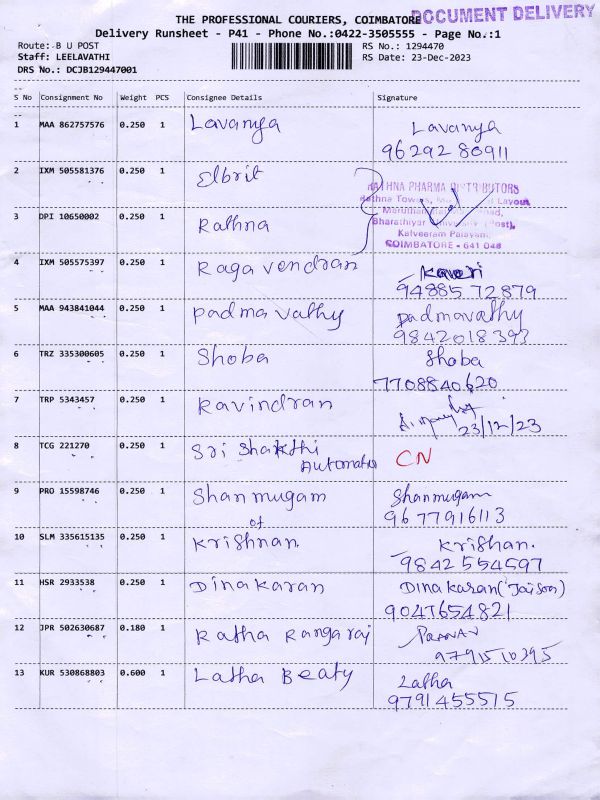 THE PROFESSIONAL COURIERS, COIMBATORE
DOCUMENT DELIVERY
Delivery Runsheet - P41 - Phone No.:0422-3505555 - Page No.:1
Route: B U POST
RS No.: 1294470
Staff: LEELAVATHI
RS Date: 23-Dec-2023
DRS No.: DCJB129447001
S No Consignment No Weight PCS Consignee Details Signature
1 MAA 862757576 0.250 1 Lavanya Lavanya
96292 80911
2 IXM 505581376 0.250 1 Elbrit
RATHNA PHARMA DISTRIBUTORS
Rathna Towers, Layout
3 DPI 10650002 0.250 1 Rathna
Bharathiyar (Post),
Kalveeram Palayam,
COIMBATORE - 641 046
4 IXM 505575397 0.250 1 Ragavendran Kaveri
94885 72879
5 MAA 943841044 0.250 1 Padmavathy Padmavathy
9842018393
6 TRZ 335300605 0.250 1 Shoba Shoba
7708840620
7 TRP 5343457 0.250 1 Ravindran
23/12/23
8 TCG 221270 0.250 1 Sri Shakthi
Automatio CN
9 PRO 15598746 0.250 1 Shanmugam Shanmugam
of 9677916113
10 SLM 335615135 0.250 1 Krishnan. Krishan.
9842554597
11 HSR 2933538 0.250 1 Dinakaran Dinakaran (Jaison)
9047654821
12 JPR 502630687 0.180 1 Ratha Rangaraj PRANAV
9791510395
13 KUR 530868803 0.600 1 Latha Beaty Latha
9791455515